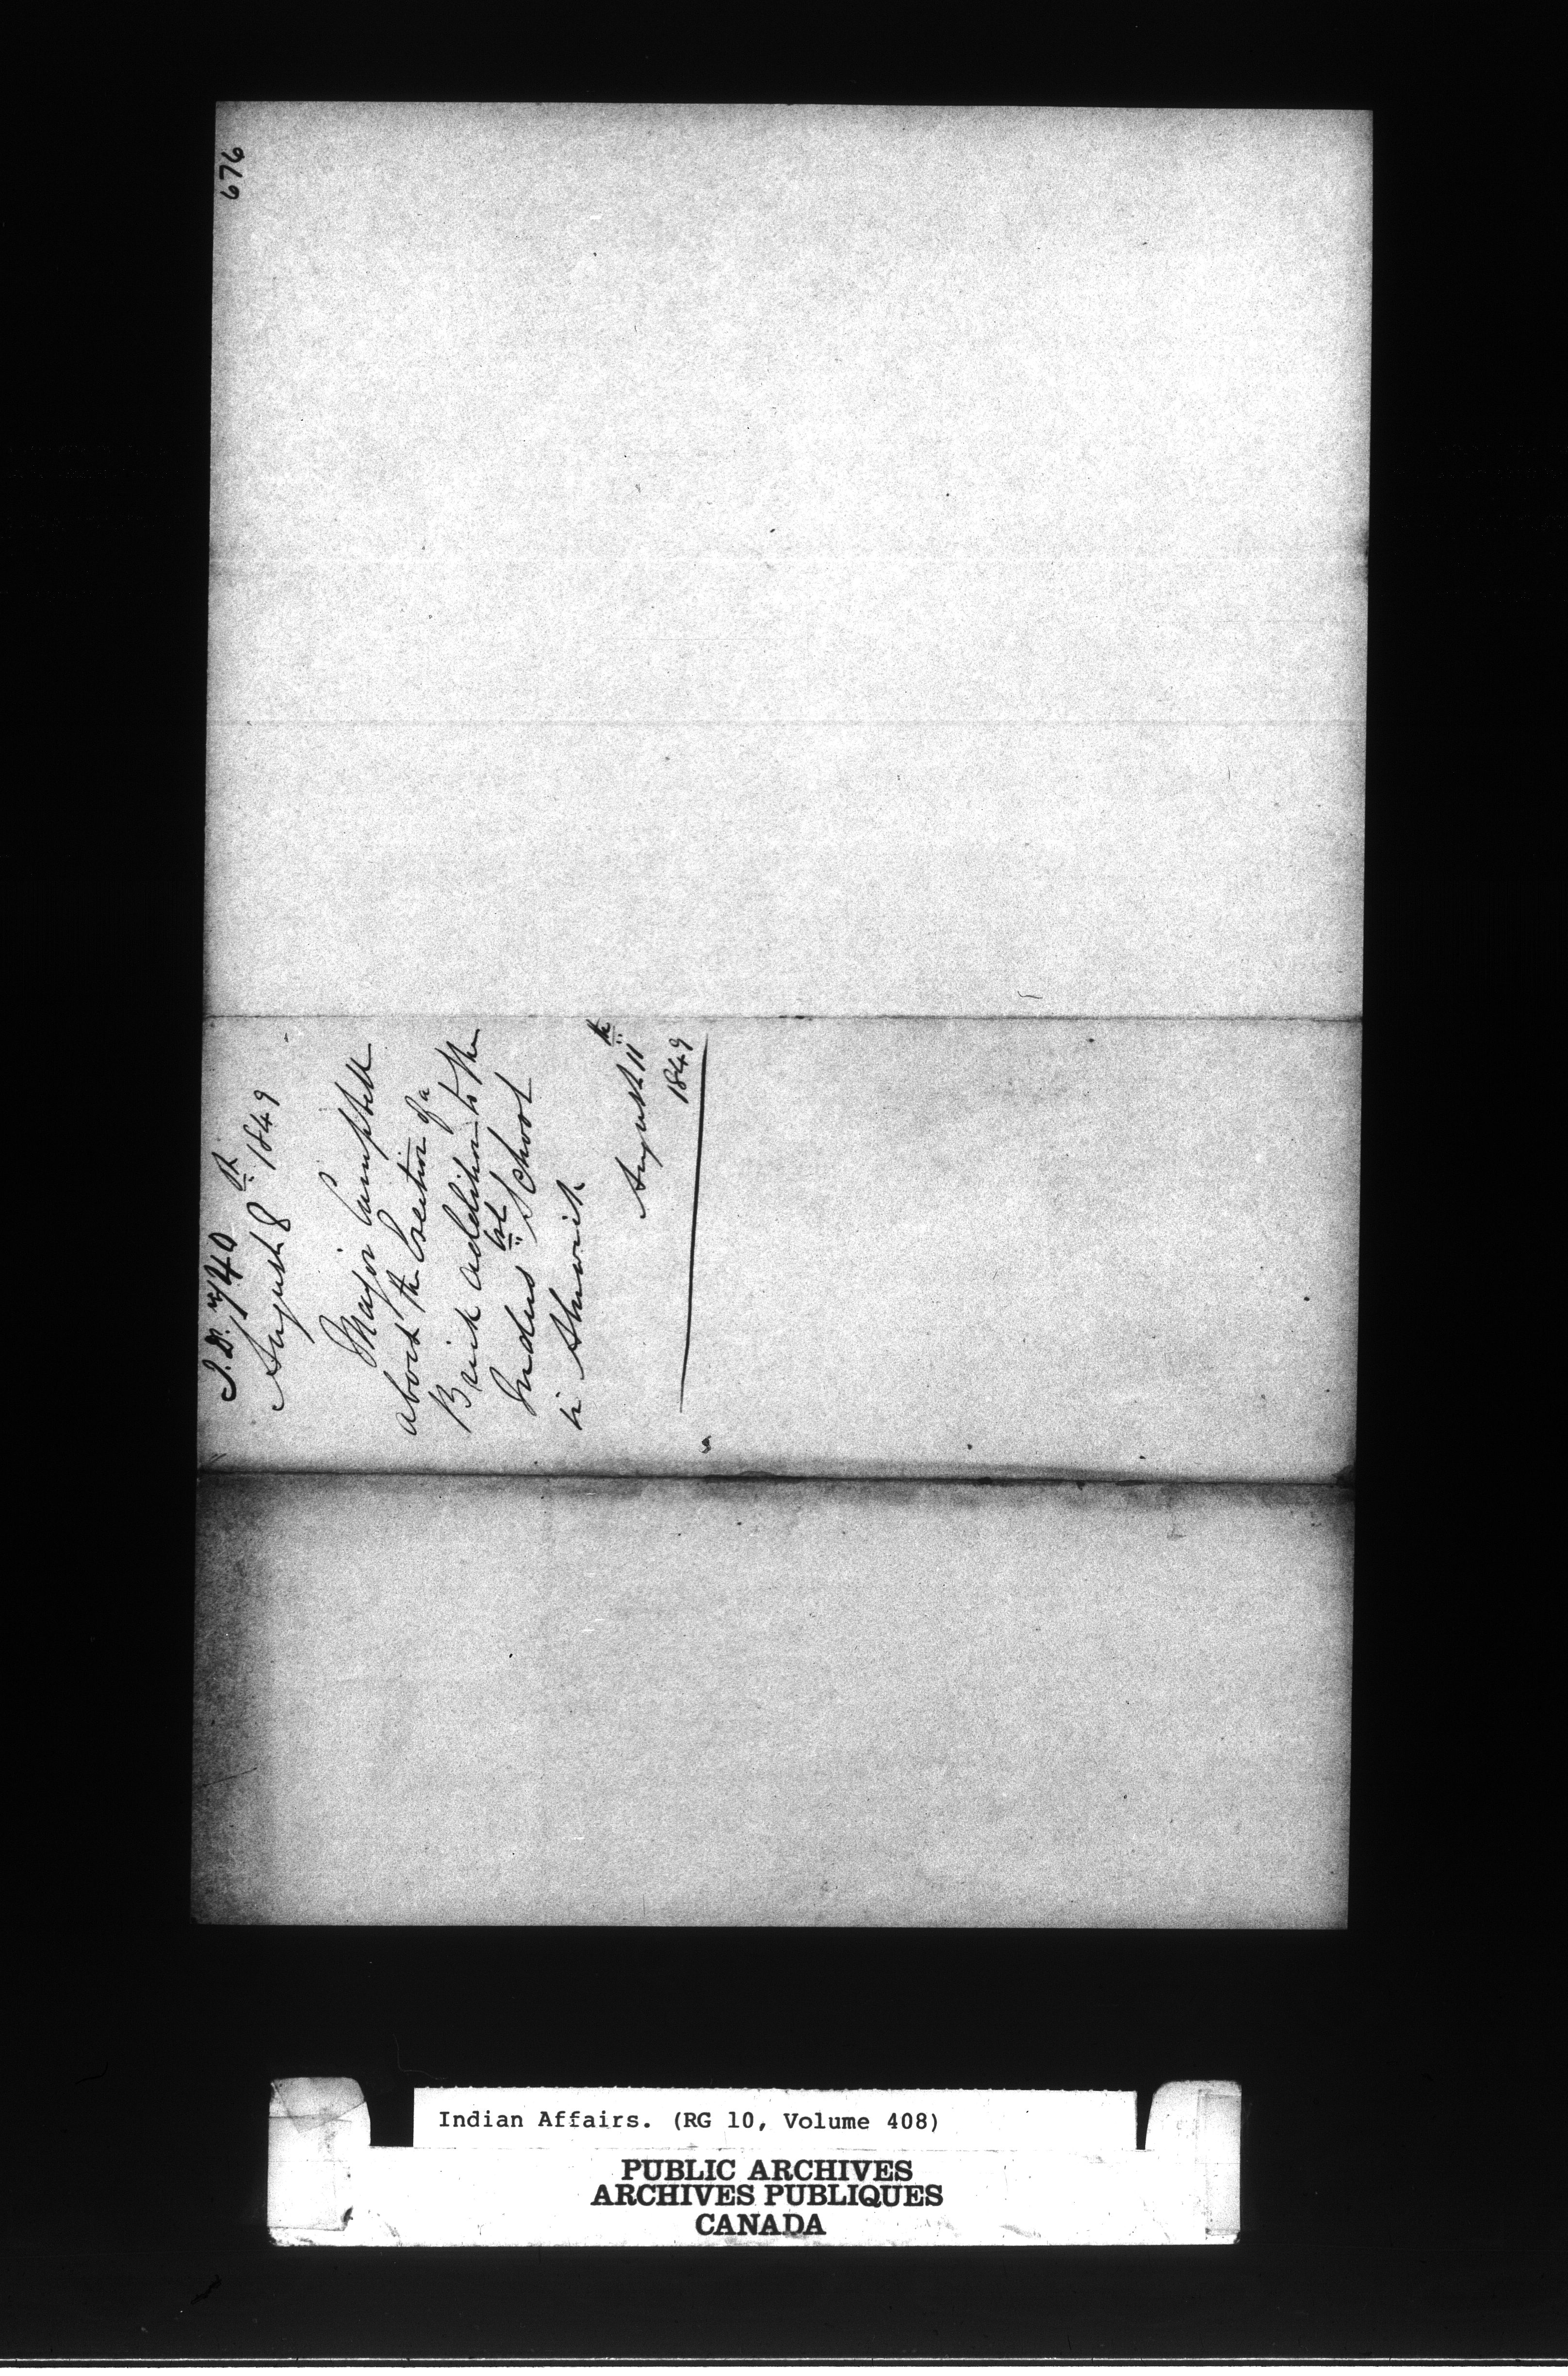 676
I.D. 7/40
August 8th 1849
Major Campbell
about the Erection of a
Brick addition to the
Indus trl School
in Alnwick
August 11th
1849
Indian Affairs. (RG 10, Volume 408)
PUBLIC ARCHIVES
ARCHIVES PUBLIQUES
CANADA